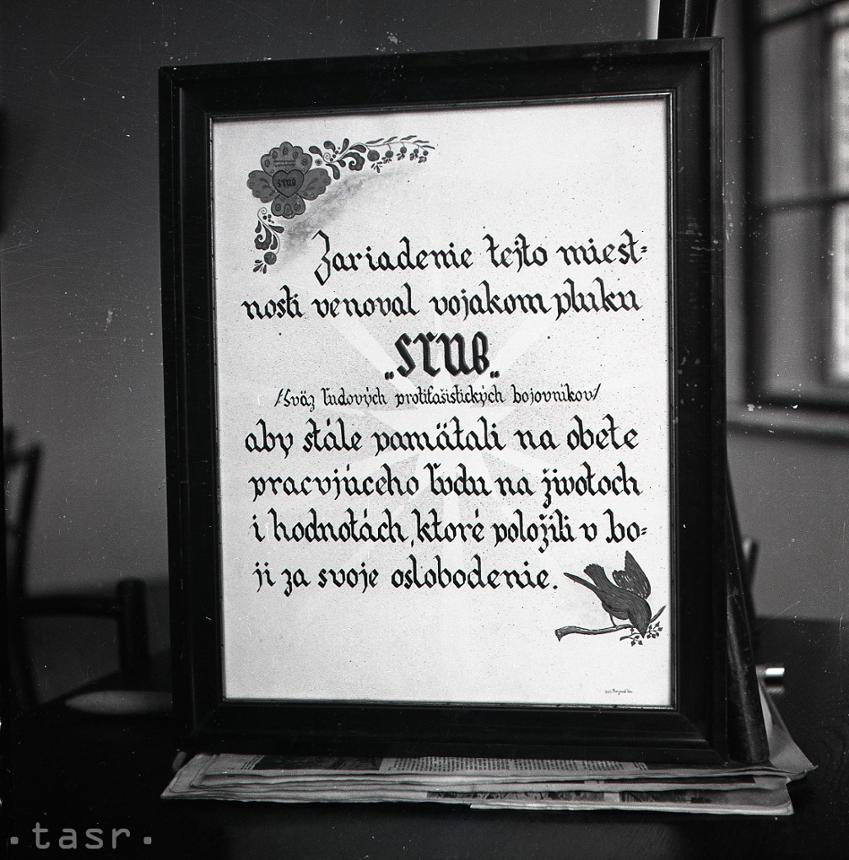 SĽUB
Zariadenie tejto miest=
nosti venoval vojakom pluku
„SĽUB„
/Sväz ľudových protifašistických bojovníkov/
aby stále pamätali na obete
pracujúceho ľudu na životoch
i hodnotách, ktoré položili v bo=
ji za svoje oslobodenie.
.tasr.